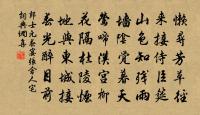 懶尋芳草徑
來接侍臣筵
山色知殘雨
墻陰覺暮天
鶯啼漢宮柳
花隔杜陵煙
地與東城接
春光醉目前
郎士元春宴張舍人宅
詞典網書